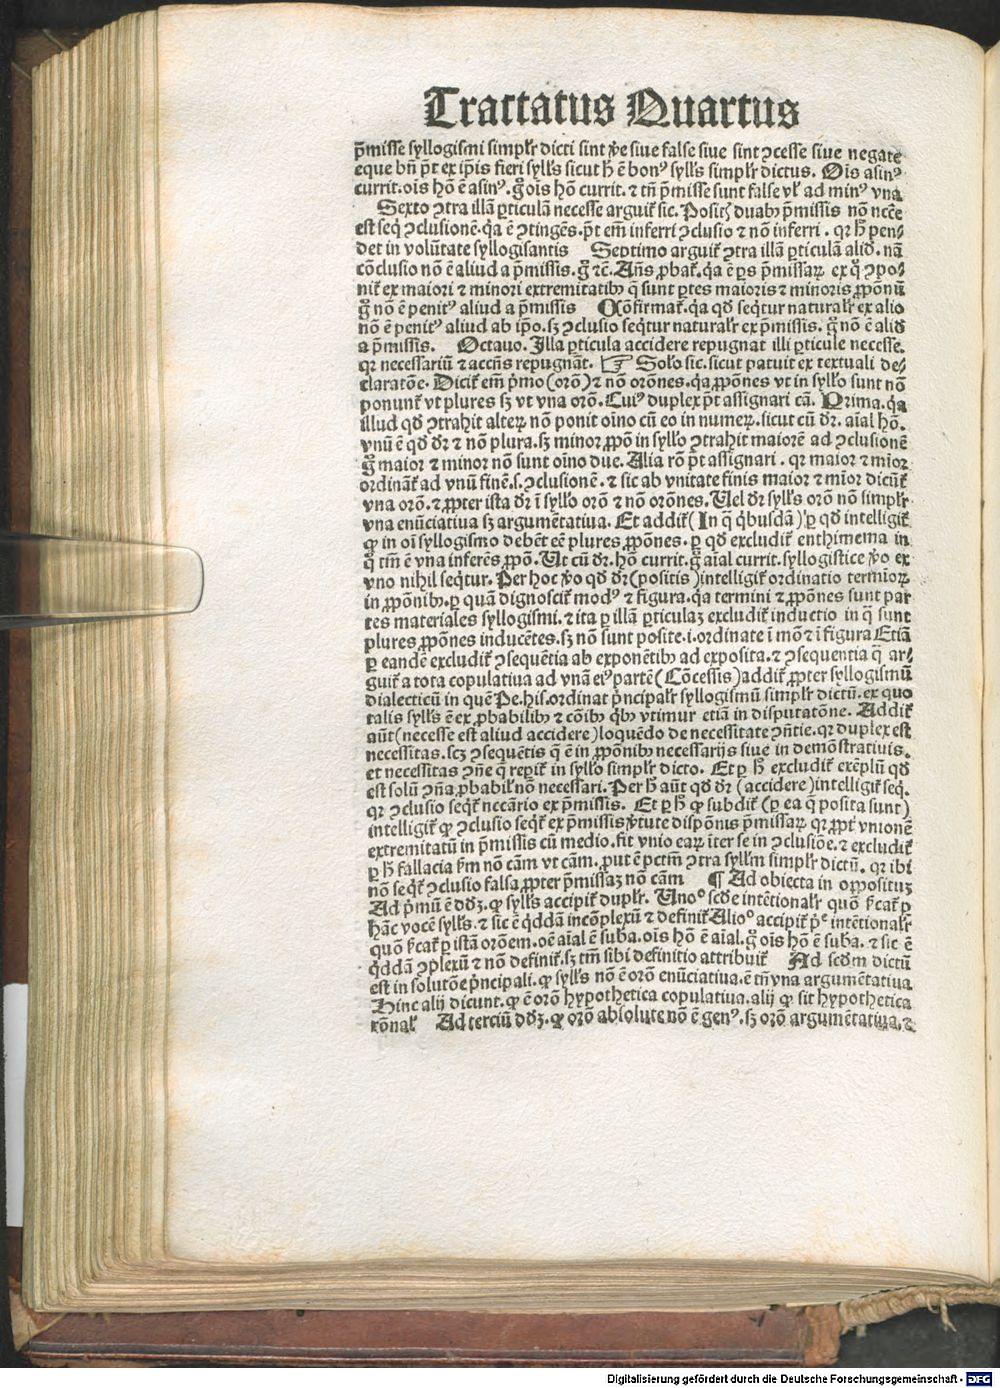 Tractatus Quartus
p̄misse syllogismi simplr̄ dicti sint ꝟe siue false siue sint ꝯcesse siue negate
eque bn̄ pt̄ ex ip̄is fieri sylls sicut h̄ ē bonꝰ sylls simplr̄ dictus. Oīs asinꝰ
currit. ois hō ē asinꝰ. gͦ ois hō currit. ⁊ tn̄ p̄misse sunt false vl̓ ad minꝰ vna
Sexto ꝯtra illā ꝑticulā necesse arguit̄ sic. Positꝭ duabꝰ p̄missis nō ncc̄e
est seq̄ ꝯclusionē. q̇a ē ꝯtingēs. pt̄ em̄ inferri ꝯclusio ⁊ nō inferri . qꝛ h̄ pen⸗
det in volūtate syllogisantis Septimo arguit̄ ꝯtra illā ꝑticulā aliđ. nā
cōclusio nō ē aliud a p̄missis. gͦ ⁊c̄. Añs ꝓbat̄. q̇a ē ꝑs p̄missaꝝ ex qͦ ꝯpo⸗
nit̄ ex maiori ⁊ minori extremitatibꝰ q̄ sunt ꝑtes maioris ⁊ minoris ꝓpōnū
gͦ nō ē penitꝰ aliud a p̄missis Cōfirmat̄. q̇a qđ seqt̄ur naturalr̄ ex alio
nō ē penitꝰ aliud ab ip̄o. sꝫ ꝯclusio seqt̄ur naturalr̄ ex p̄missis. gͦ nō ē aliđ
a p̄missis. Octauo. Illa ꝑticula accidere repugnat illi ꝑticule necesse.
qꝛ necessariū ⁊ accn̄s repugnāt. ☞ Solo sic. sicut patuit ex textuali de⸗
claratōe. Dicit̄ em̄ ṗmo (orō) ⁊ nō orōnes. q̇a ꝓpōnes vt in syllo sunt nō
ponunt̄ vt plures sꝫ vt vna orō. Cuiꝰ duplex pt̄ assignari cā. Prima. q̇a
illud qđ ꝯtrahit alteꝝ nō ponit oīno cū eo in numeꝝ. sicut cū dr̄. aīal hō.
vnū ē qđ dr̄ ⁊ nō plura. sꝫ minor ꝓpō in syllo ꝯtrahit maiorē ad ꝯclusionē
gͦ maior ⁊ minor nō sunt oīno due. Alia rō pt̄ assignari . qꝛ maior ⁊ mīor
ordinat̄ ad vnū finē. s. ꝯclusionē . ⁊ sic ab vnitate finis maior ⁊ mīor dicūt̄
vna orō. ⁊ ꝓpter ista dr̄ ī syllo orō ⁊ nō orōnes. Uel dr̄ sylls orō nō simplr̄
vna enūciatiua sꝫ argumētatiua. Et addit̄ (In q̄ qͥbusdā) ꝑ qđ intelligit̄
ꝙ in oī syllogismo debēt eē plures ꝓpōnes. ꝑ qđ excludit̄ enthimema in
qͦ tm̄ ē vna inferēs ꝓpō. Ut cū dr̄. hō currit. gͦ aīal currit. syllogistice ꝟo ex
vno nihil seqt̄ur. Per hoc ꝟo qđ dr̄ (positis) intelligit̄ ordinatio termīoꝝ
in ꝓpōnibꝰ. ꝑ quā dignoscit̄ modꝰ ⁊ figura. q̇a termini ⁊ ꝓpōnes sunt par
tes materiales syllogismi. ⁊ ita ꝑ illā ꝑticulaꝫ excludit̄ inductio in q̄ sunt
plures ꝓpōnes inducētes. sꝫ nō sunt posite. i. ordinate ī mō ⁊ ī figura Etiā
ꝑ eandē excludit̄ ꝯsequētia ab exponētibꝰ ad exposita. ⁊ ꝯsequentia q̄ ar⸗
guit̄ a tota copulatiua ad vnā eiꝰ partē (Cōcessis) addit̄ ꝓpter syllogismū
dialecticū in quē Pe. his. ordinat pͥncipalr̄ syllogismū simplr̄ dictū. ex quo
talis sylls ē ex ꝓbabilibꝰ ⁊ cōibꝰ qͥbꝰ vtimur etiā in disputatōne. Addit̄
aūt (necesse est aliud accidere) loquēdo de necessitate ꝯn̄tie. qꝛ duplex est
necessitas. scꝫ ꝯsequētis q̄ ē in ꝓpōnibꝰ necessarijs siue in demōstratiuis.
et necessitas ꝯn̄e q̄ reꝑit̄ in syllo simplr̄ dicto. Et ꝑ h̄ excludit̄ exēplū qđ
est solū ꝯn̄a ꝓbabil̓ nō necessari. Per h̄ aūt qđ dr̄ (accidere) intelligit̄ seq̄.
qꝛ ꝯclusio seqt̄ nccārio ex p̄missis. Et ꝑ h̄ ꝙ subdit̄ (ꝑ ea q̄ posita sunt)
intelligit̄ ꝙ ꝯclusio seqt̄ ex p̄missis ꝟtute dispōnis p̄missaꝝ qꝛ ꝓpt̄ vnionē
extremitatū in p̄missis cū medio. fit vnio eaꝝ īter se in ꝯclusiōe. ⁊ excludit̄
ꝑ h̄ fallacia ẜm nō cām vt cām. ꝓut ē pctm̄ ꝯtra syllm simplr̄ dictū. qꝛ ibi
nō seqt̄ ꝯclusio falsa ꝓpter p̄missaꝫ nō cām ¶ Ad obiecta in oppositūꝫ
Ad ṗmū ē dđꝫ. ꝙ sylls accipit̄ duplr̄. Unoᵒ scđe intētionalr̄ quō ẜcat̄ ꝑ
hāc vocē sylls. ⁊ sic ē qͥddā incōplexū ⁊ definit̄ Alioᵒ accipit̄ pͥᵉ intētionalr̄
quō ẜcat̄ ꝑ istā orōem. oē aīal ē suba. ois hō ē aīal. gͦ ois hō ē suba. ⁊ sic ē
qͥddā ꝯplexū ⁊ nō definit̄. sꝫ tm̄ sibi definitio attribuit̄ Ad scđm dictū
est in solutōe pͥncipali. ꝙ sylls nō ē orō enūciatiua. ē tn̄ vna argumētatiua
Hinc alij dicunt. ꝙ ē orō hypothetica copulatiua. alij ꝙ sit hypothetica
rōnal̓ Ad terciū dđꝫ. ꝙ orō absolute nō ē genꝰ. sꝫ orō argumētatiua. ⁊
Digitalisierung gefördert durch die Deutsche Forschungsgemeinschaft - DFG